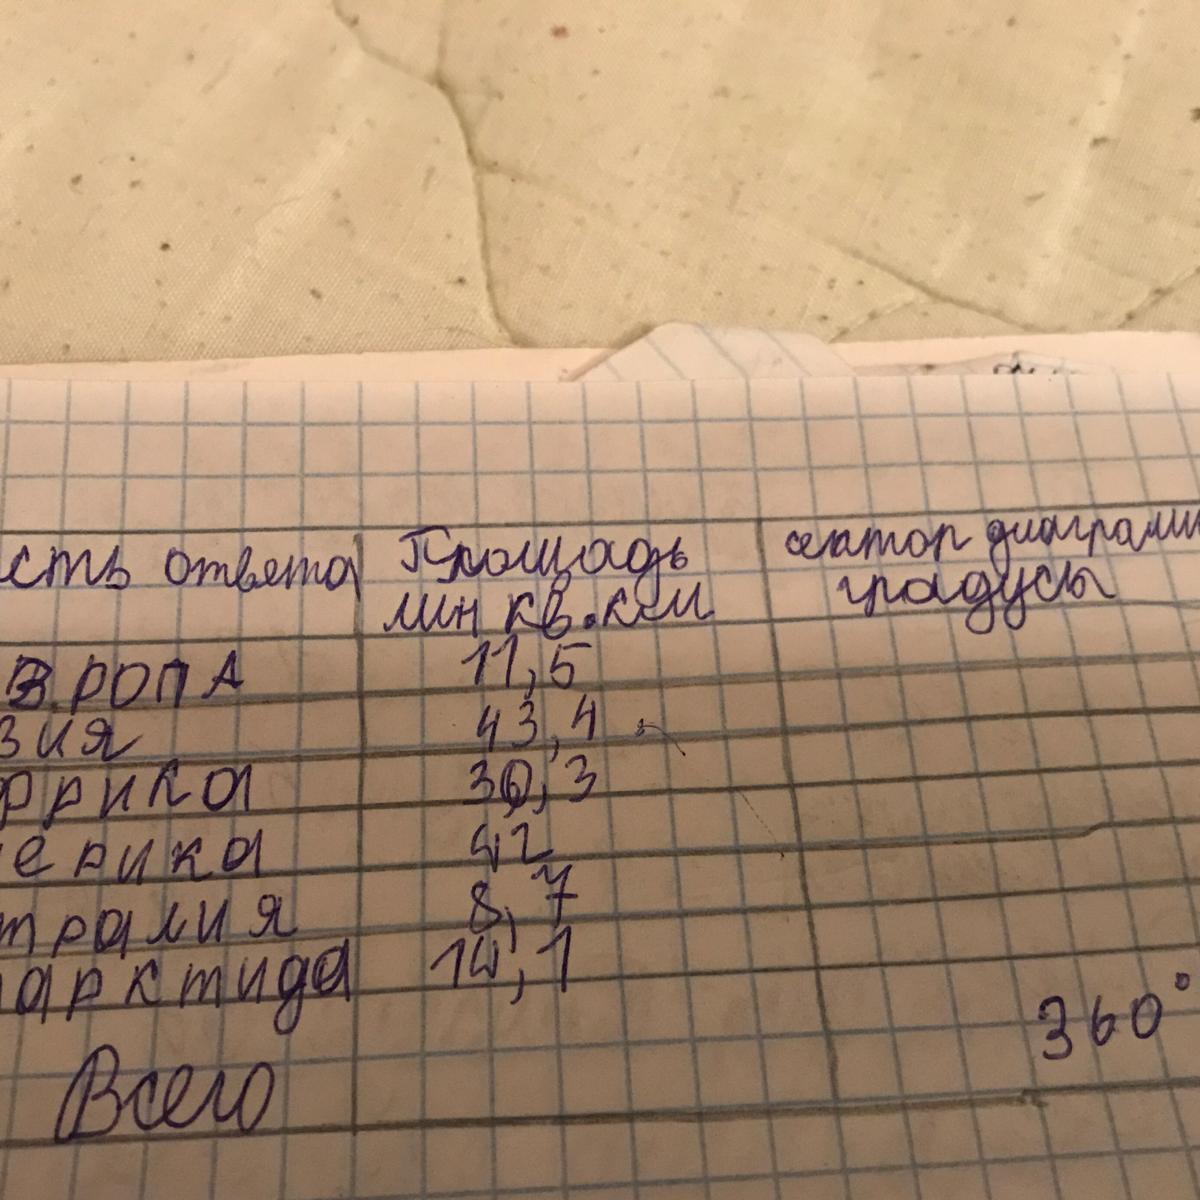 сть ответа Площадь сектор диаграмм
млн кв.км градусы
ВРОПА 11,5
зия 43,4
фрика 30,3
мерика 42
тралия 8,7
нарктида 14,1
360°
Всего